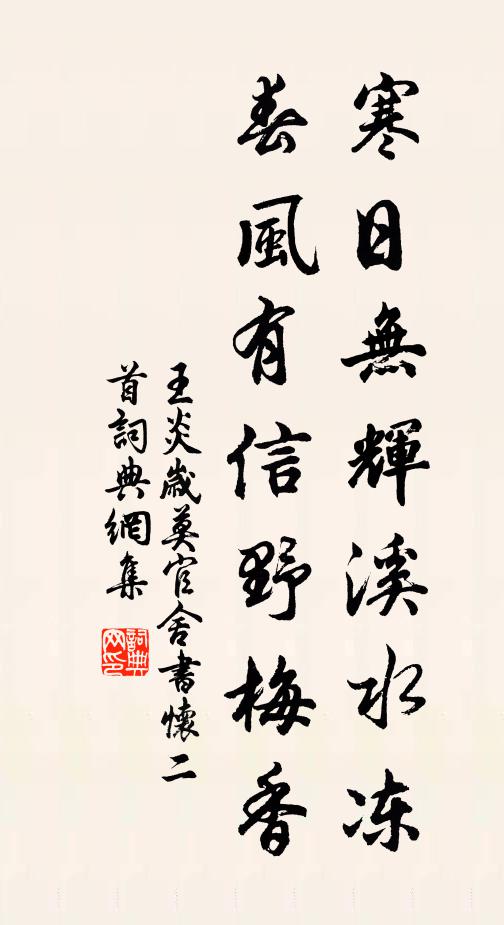 寒日無輝溪水冻
春風有信野梅香
王炎歲莫官舍書懷二
首詞典網集
詞典网印